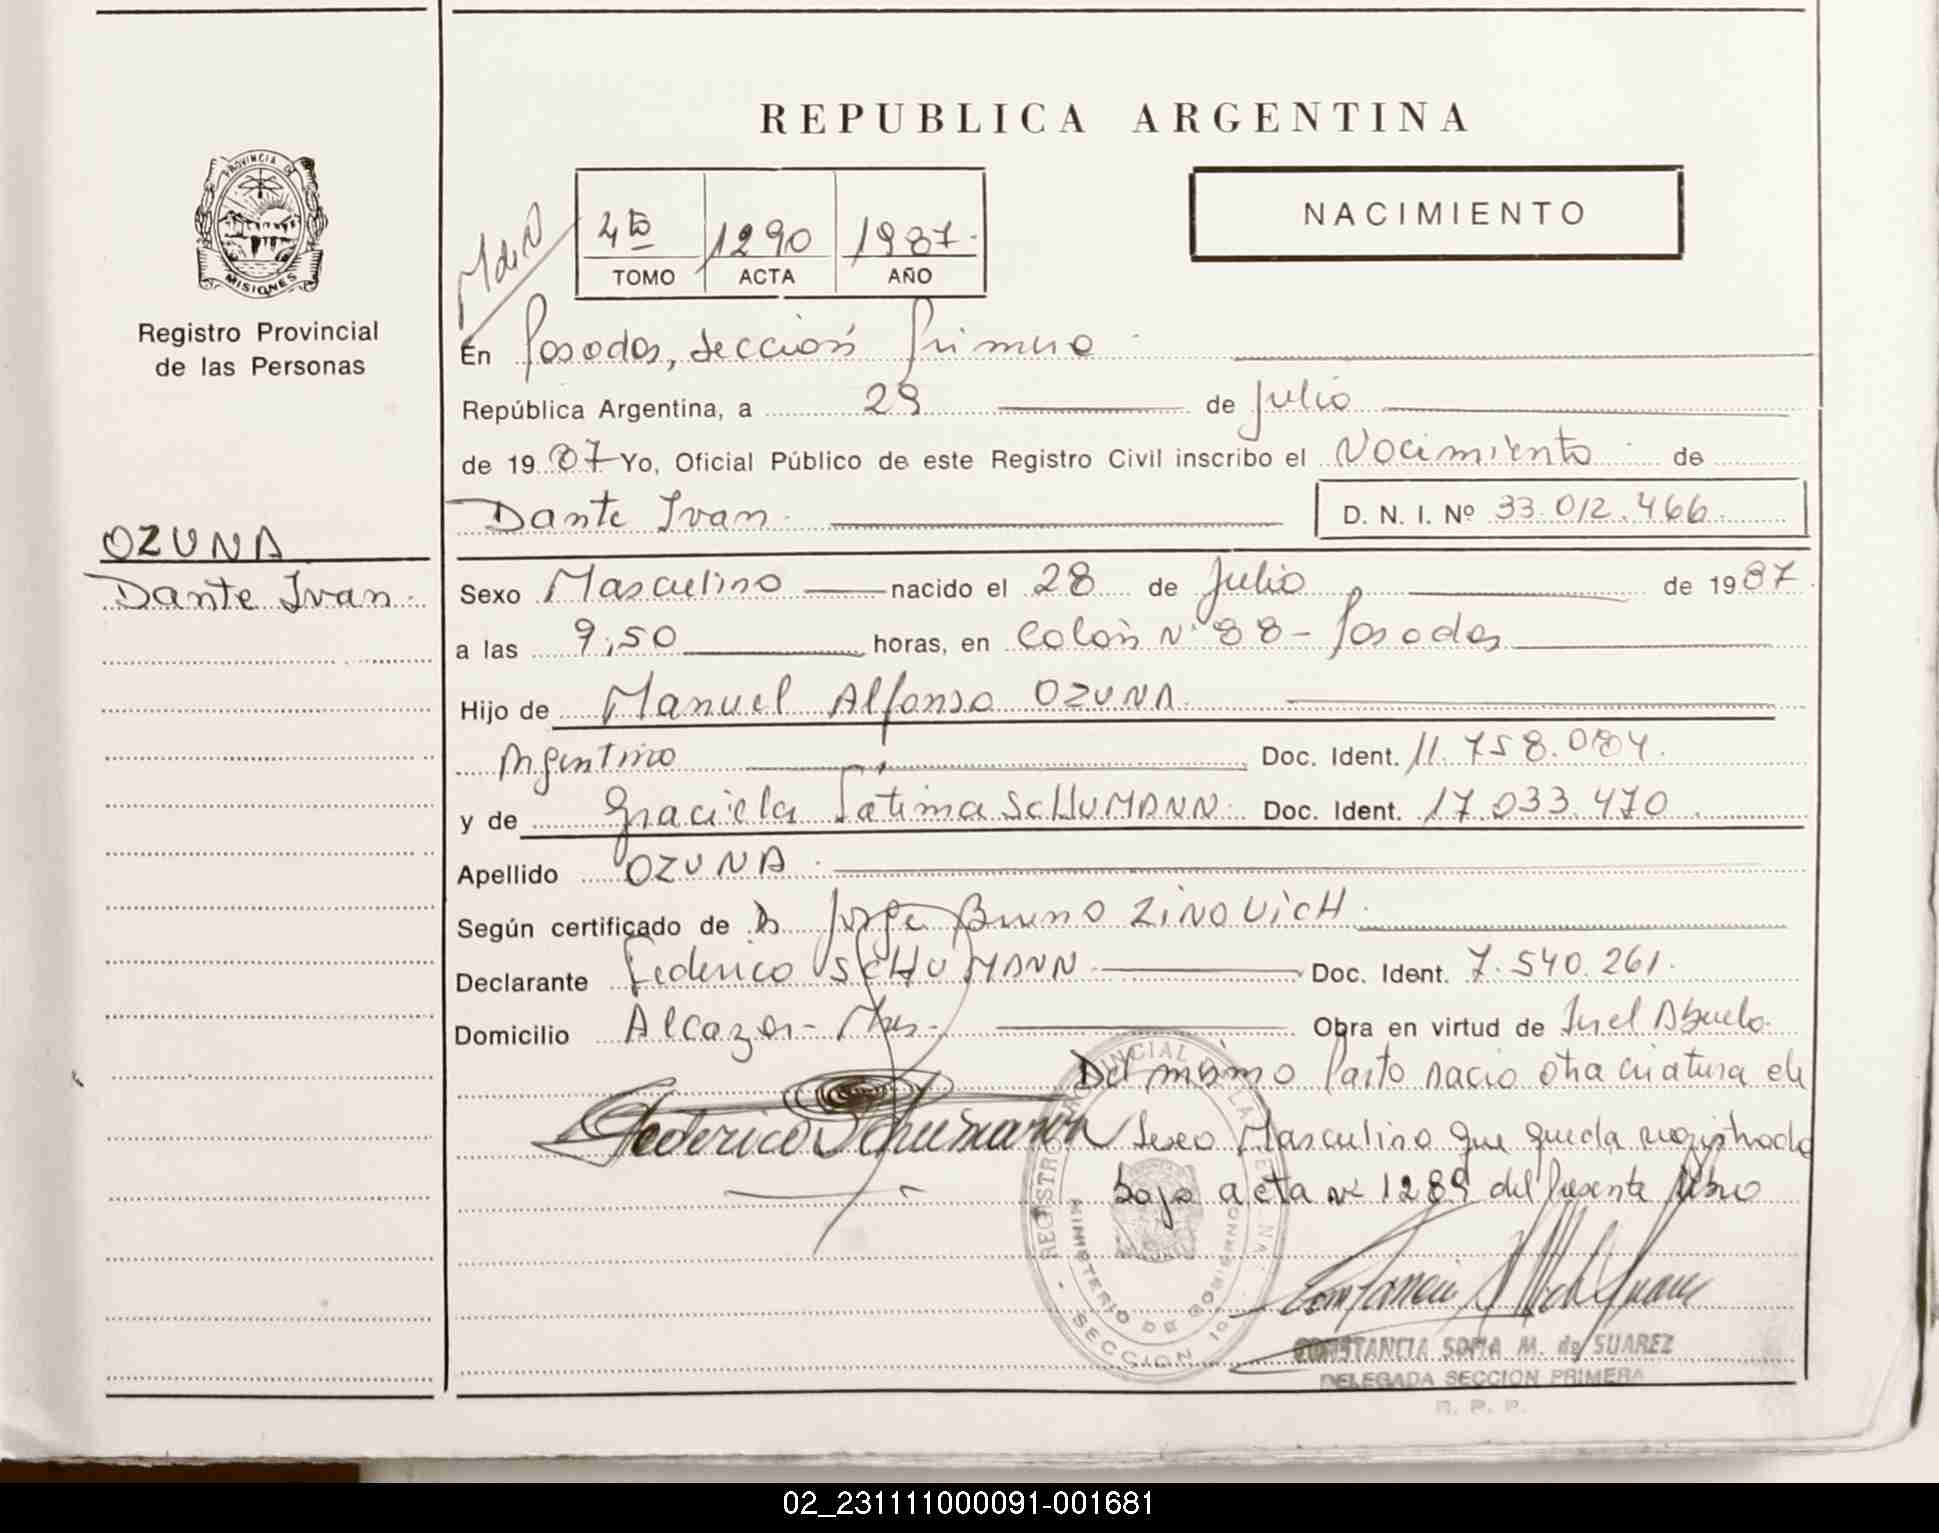 REPUBLICA ARGENTINA
PROVINCIA DE
MISIONES
Registro Provincial
de las Personas
4to 1290 1987.
TOMO ACTA AÑO
NACIMIENTO
En Posadas, Sección Primera
República Argentina, a 29 de Julio
de 1987 Yo, Oficial Público de este Registro Civil inscribo el Nacimiento de
Dante Ivan. D. N. I. Nº 33.012.466.
OZUNA
Dante Ivan.
Sexo Masculino nacido el 28 de Julio de 1987.
a las 9,50 horas, en Colón Nº 88 - Posadas
Hijo de Manuel Alfonso OZUNA.
Argentino Doc. Ident. 11.758.084.
y de Graciela Fatima SCHUMANN. Doc. Ident. 17.033.470.
Apellido OZUNA.
Según certificado de Dr Jorge Bruno ZINOVICH.
Declarante Federico SCHUMANN. Doc. Ident. 7.540.261.
Domicilio Alcazar - Mnes - Obra en virtud de Ser el Abuelo.
Del mismo Parto nacio otra criatura de
Federico Schumann Sexo Masculino que queda registrado
bajo acta Nº 1289 del presente libro
REGISTRO PROVINCIAL DE LAS PERSONAS
MINISTERIO DE GOBIERNO
SECCION 1
CONSTANCIA SOFIA M. de SUAREZ
DELEGADA SECCION PRIMERA
R. P. P.
02_231111000091-001681